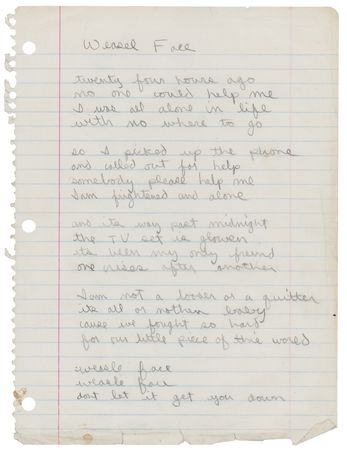 Weasel Face
twenty four hours ago
no one could help me
I was all alone in life
with no where to go
so I picked up the phone
and called out for help
somebody please help me
I am frightened and alone
and its way past midnight
the TV set is glowen
its been my only friend
one rises after another
I am not a looser or a quitter
its all or nothen baby
cause we fought so hard
for our little piece of this world
weasle face
weasle face
dont let it get you down